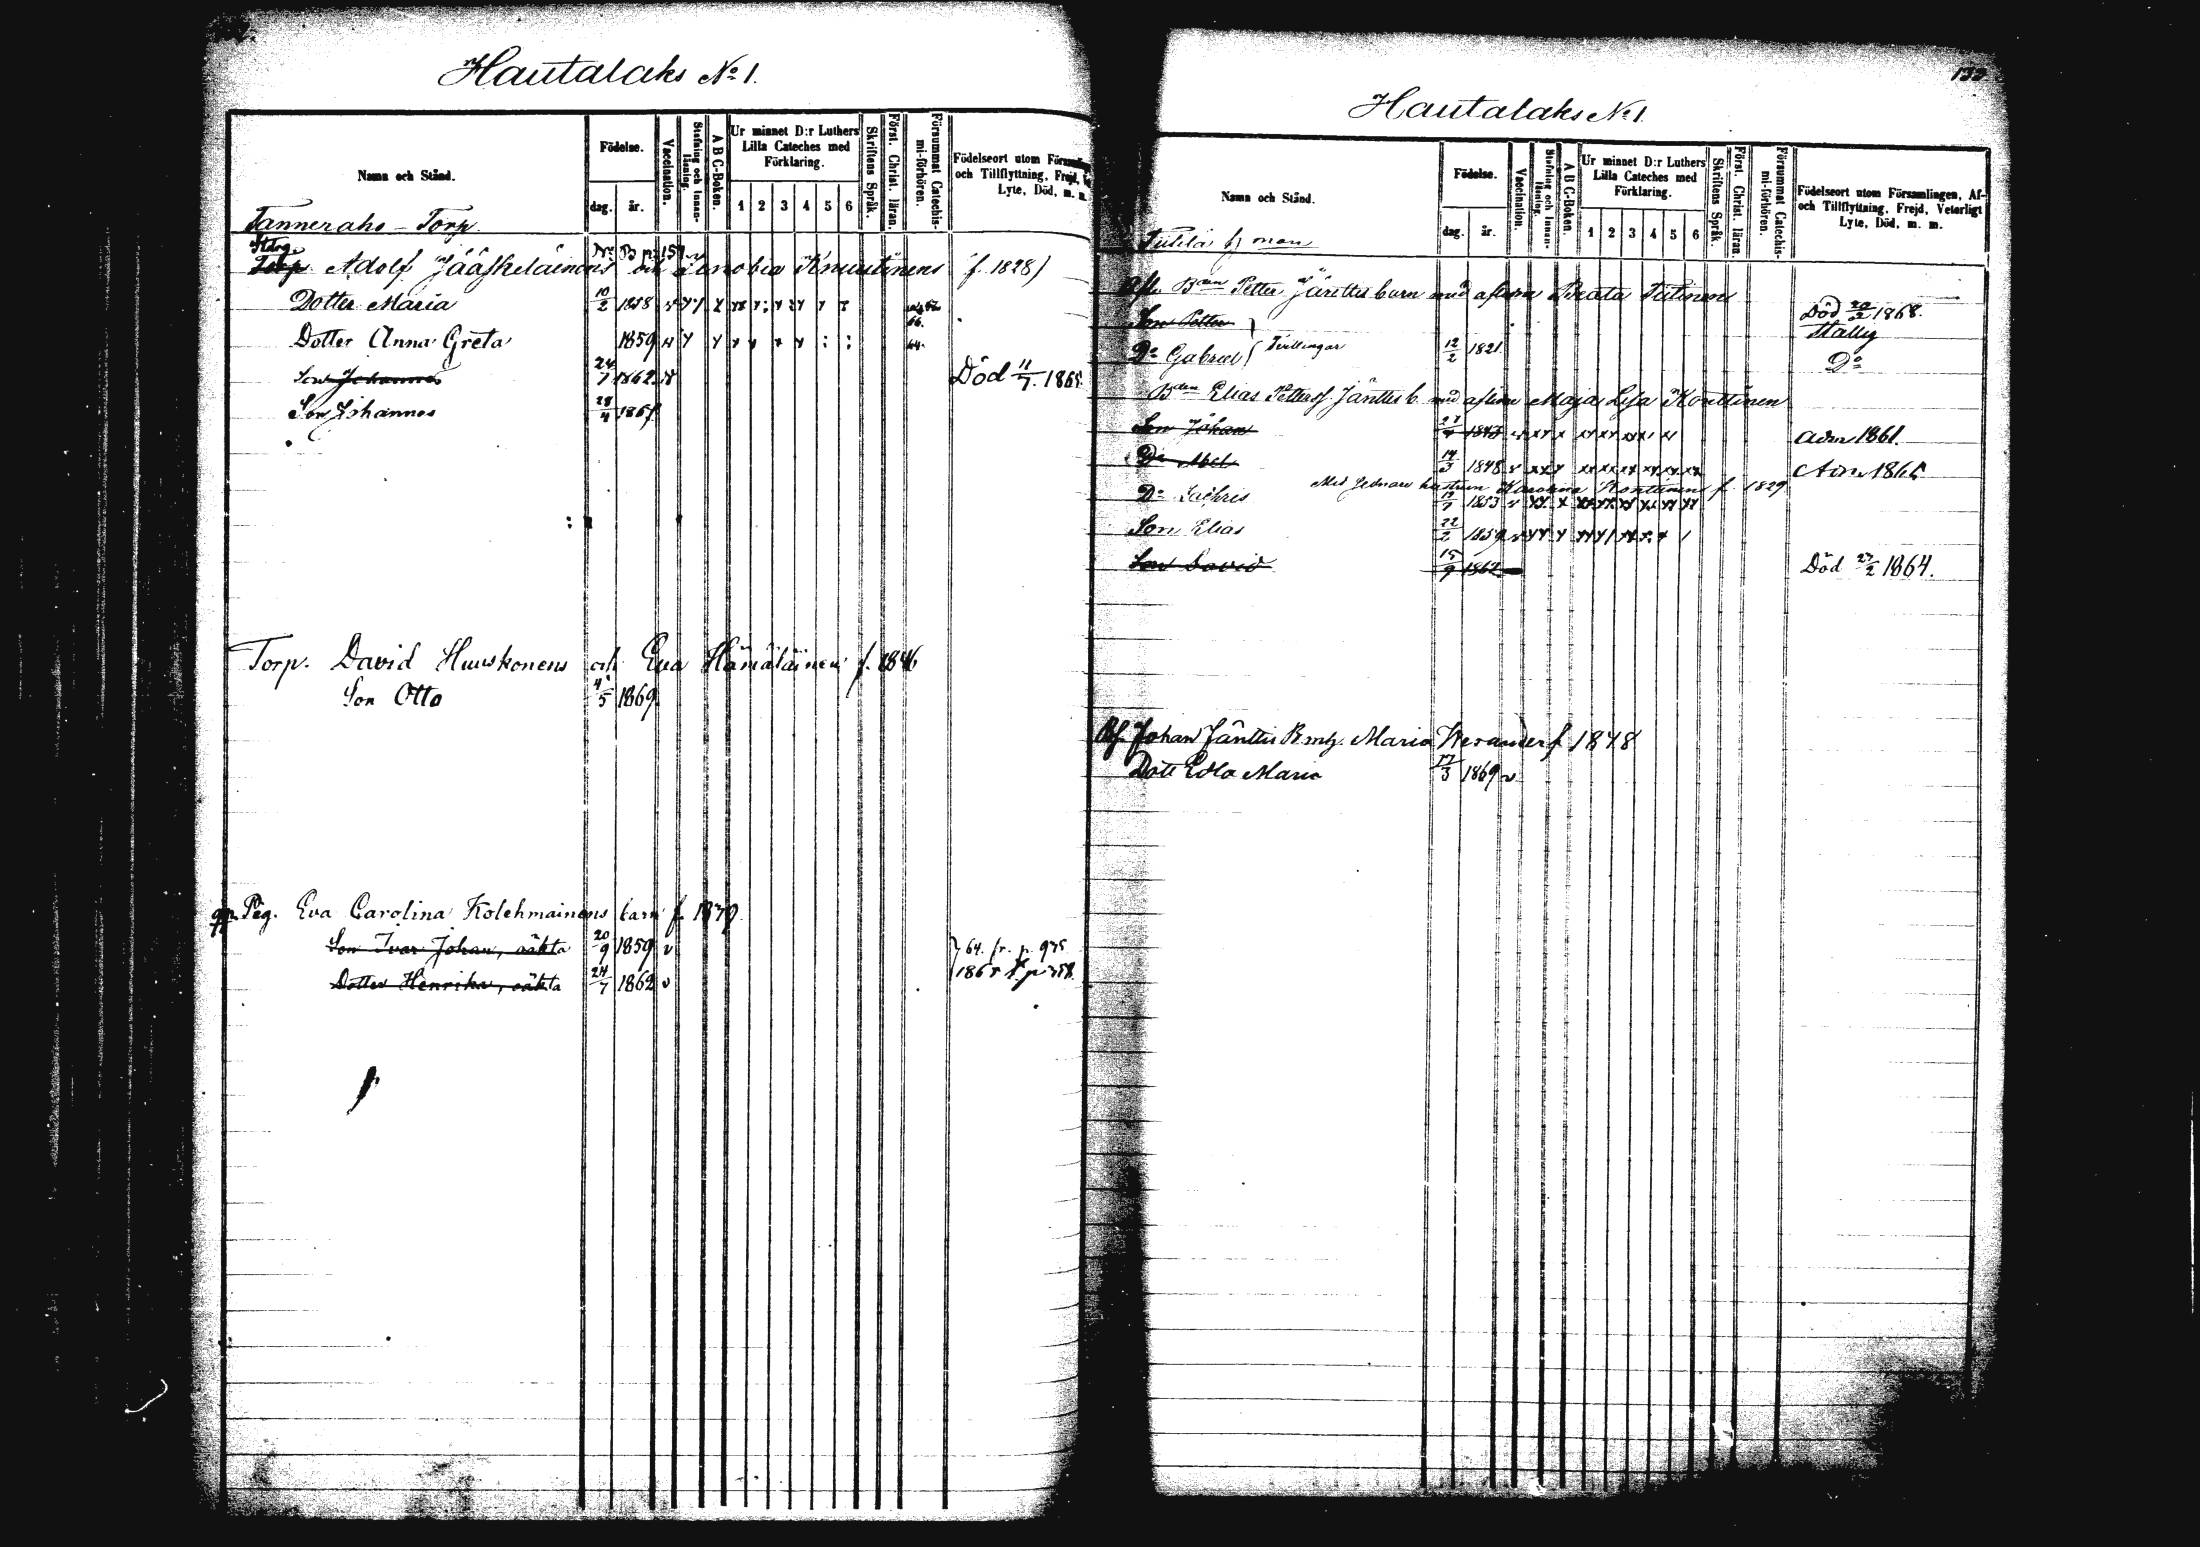 Hautalaks No 1.
Namn och Stånd.
Födelse.
dag.
år.
Vaccination.
Stafning och Innan-läsning.
A B C-Boken.
Ur minnet D:r Luthers
Lilla Cateches med
Förklaring.
1 2 3 4 5 6
Skriftens Språk.
Först. Christ. läran.
Försummat Catechis-
mi-förhören.
Födelseort utom
och Tillflyttning, Frejd,
Lyte, Död, m. m.
Tannerahs - Torp
Adolf Jääskeläinens Zenobia Knuutinens (f. 1828)
Dotter Maria 10/2 1858
66.
Dotter Anna Greta 1859
64.
Son Johannes 24/7 1862 Död 11/7 1865
Son Johannes 28/4
Torp. David Huuskonens och Eva Hämäläinen f. 1846
Son Otto 4/5 1869.
Pig. Eva Carolina Kolehmainens barn f.
Son Ivar Johan, oäkta 20/9 1859 v 64. fr. p. 975
Dotter Henrika, oäkta 24/7 1862 v
Hautalaks No 1
Namn och Stånd.
Födelse.
dag.
år.
Vaccination.
Stafning och Innan-läsning.
A B C-Boken.
Ur minnet D:r Luthers
Lilla Cateches med
Förklaring.
1 2 3 4 5 6
Skriftens Språk.
Först. Christ. läran.
Försummat Catechis-
mi-förhören.
Födelseort utom Församlingen, Af-
och Tillflyttning, Frejd, Veterligt
Lyte, Död, m. m.
Petter Jänttis barn med aflidna Beata
Son Petter Död 20/2 1868.
Do Gabriel Tvillingar 12/2 1821 Do
Bden Elias Pettersf Jänttis b. med aflidna Maja Lisa Konttinen
Son Johan 27/4 1843 adm 1861.
Do Abel 14/3 1848 Adm 1865
Med sednare hustrun Karolina Konttinen f. 1829
Do Zachris 19/7 1853
Son Elias 22/2 1859
Son David 15/9 1862 Död 27/2 1864.
Johan Jänttis Maria f 1848
Dott Edla Maria 17/3 1869 v